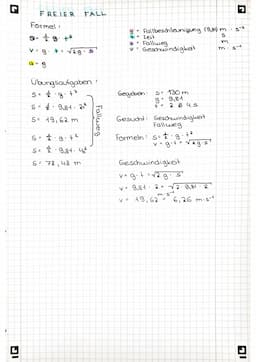 FREIER FALL
Formel:
s = ½ · g · t²
v = g · t = √2g · s
a = g
g = Fallbeschleunigung (9,81) m · s⁻²
t = Zeit s
s = Fallweg m
v = Geschwindigkeit m · s⁻¹
Übungsaufgaben:
s = ½ · g · t²
s = ½ · 9,81 · 2²
s = 19,62 m
s = ½ · g · t²
s = ½ · 9,81 · 4²
s = 78,48 m
Fallweg
Gegeben: s = 130 m
g = 9,81
t = 2 & 4 s
Gesucht: Geschwindigkeit
Fallweg
Formeln: s = ½ · g · t²
v = g · t = √2g · s
Geschwindigkeit
v = g · t = √2 g · s
v = 9,81 · 2 = √2 · 9,81 · 2
v = 19,62 m·s⁻¹ = 6,26 m·s⁻¹